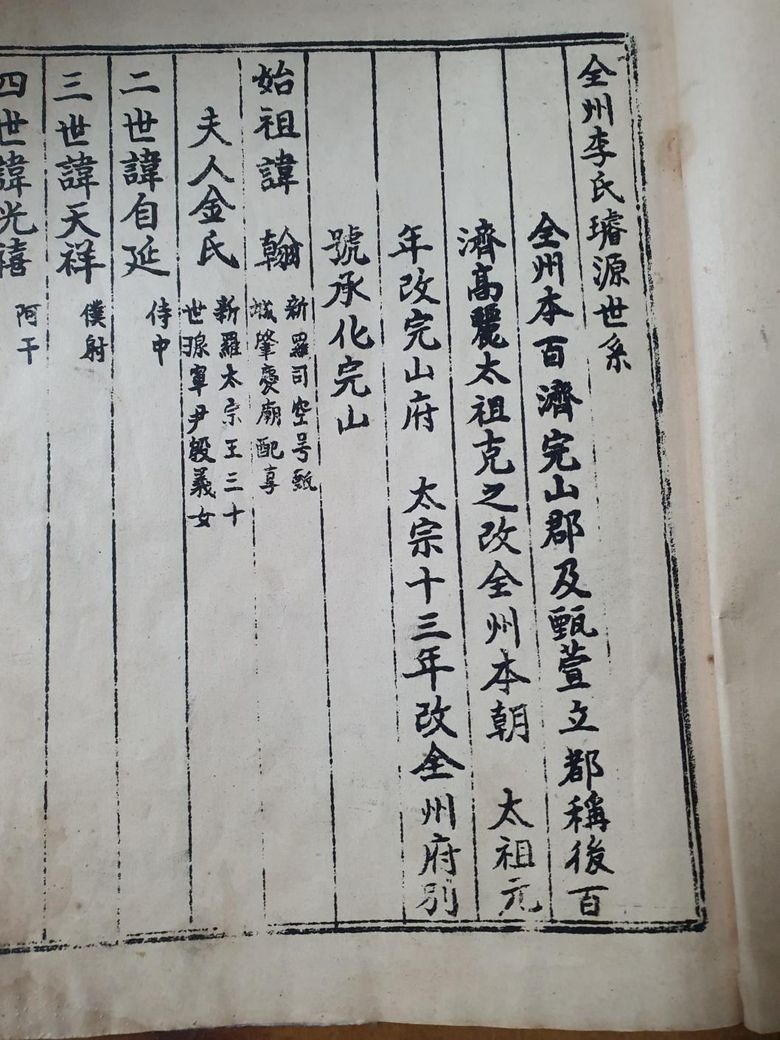 全州李氏璿源世系
全州本百濟完山郡及甄萱立都稱後百
濟高麗太祖克之改全州本朝 太祖元
年改完山府 太宗十三年改全州府別
號承化完山
始祖諱 翰
新羅司空号甄
城肇慶廟配享
夫人金氏
新羅太宗王三十
世孫軍尹殷義女
二世諱自延
侍中
三世諱天祥
僕射
四世諱光禧
阿干